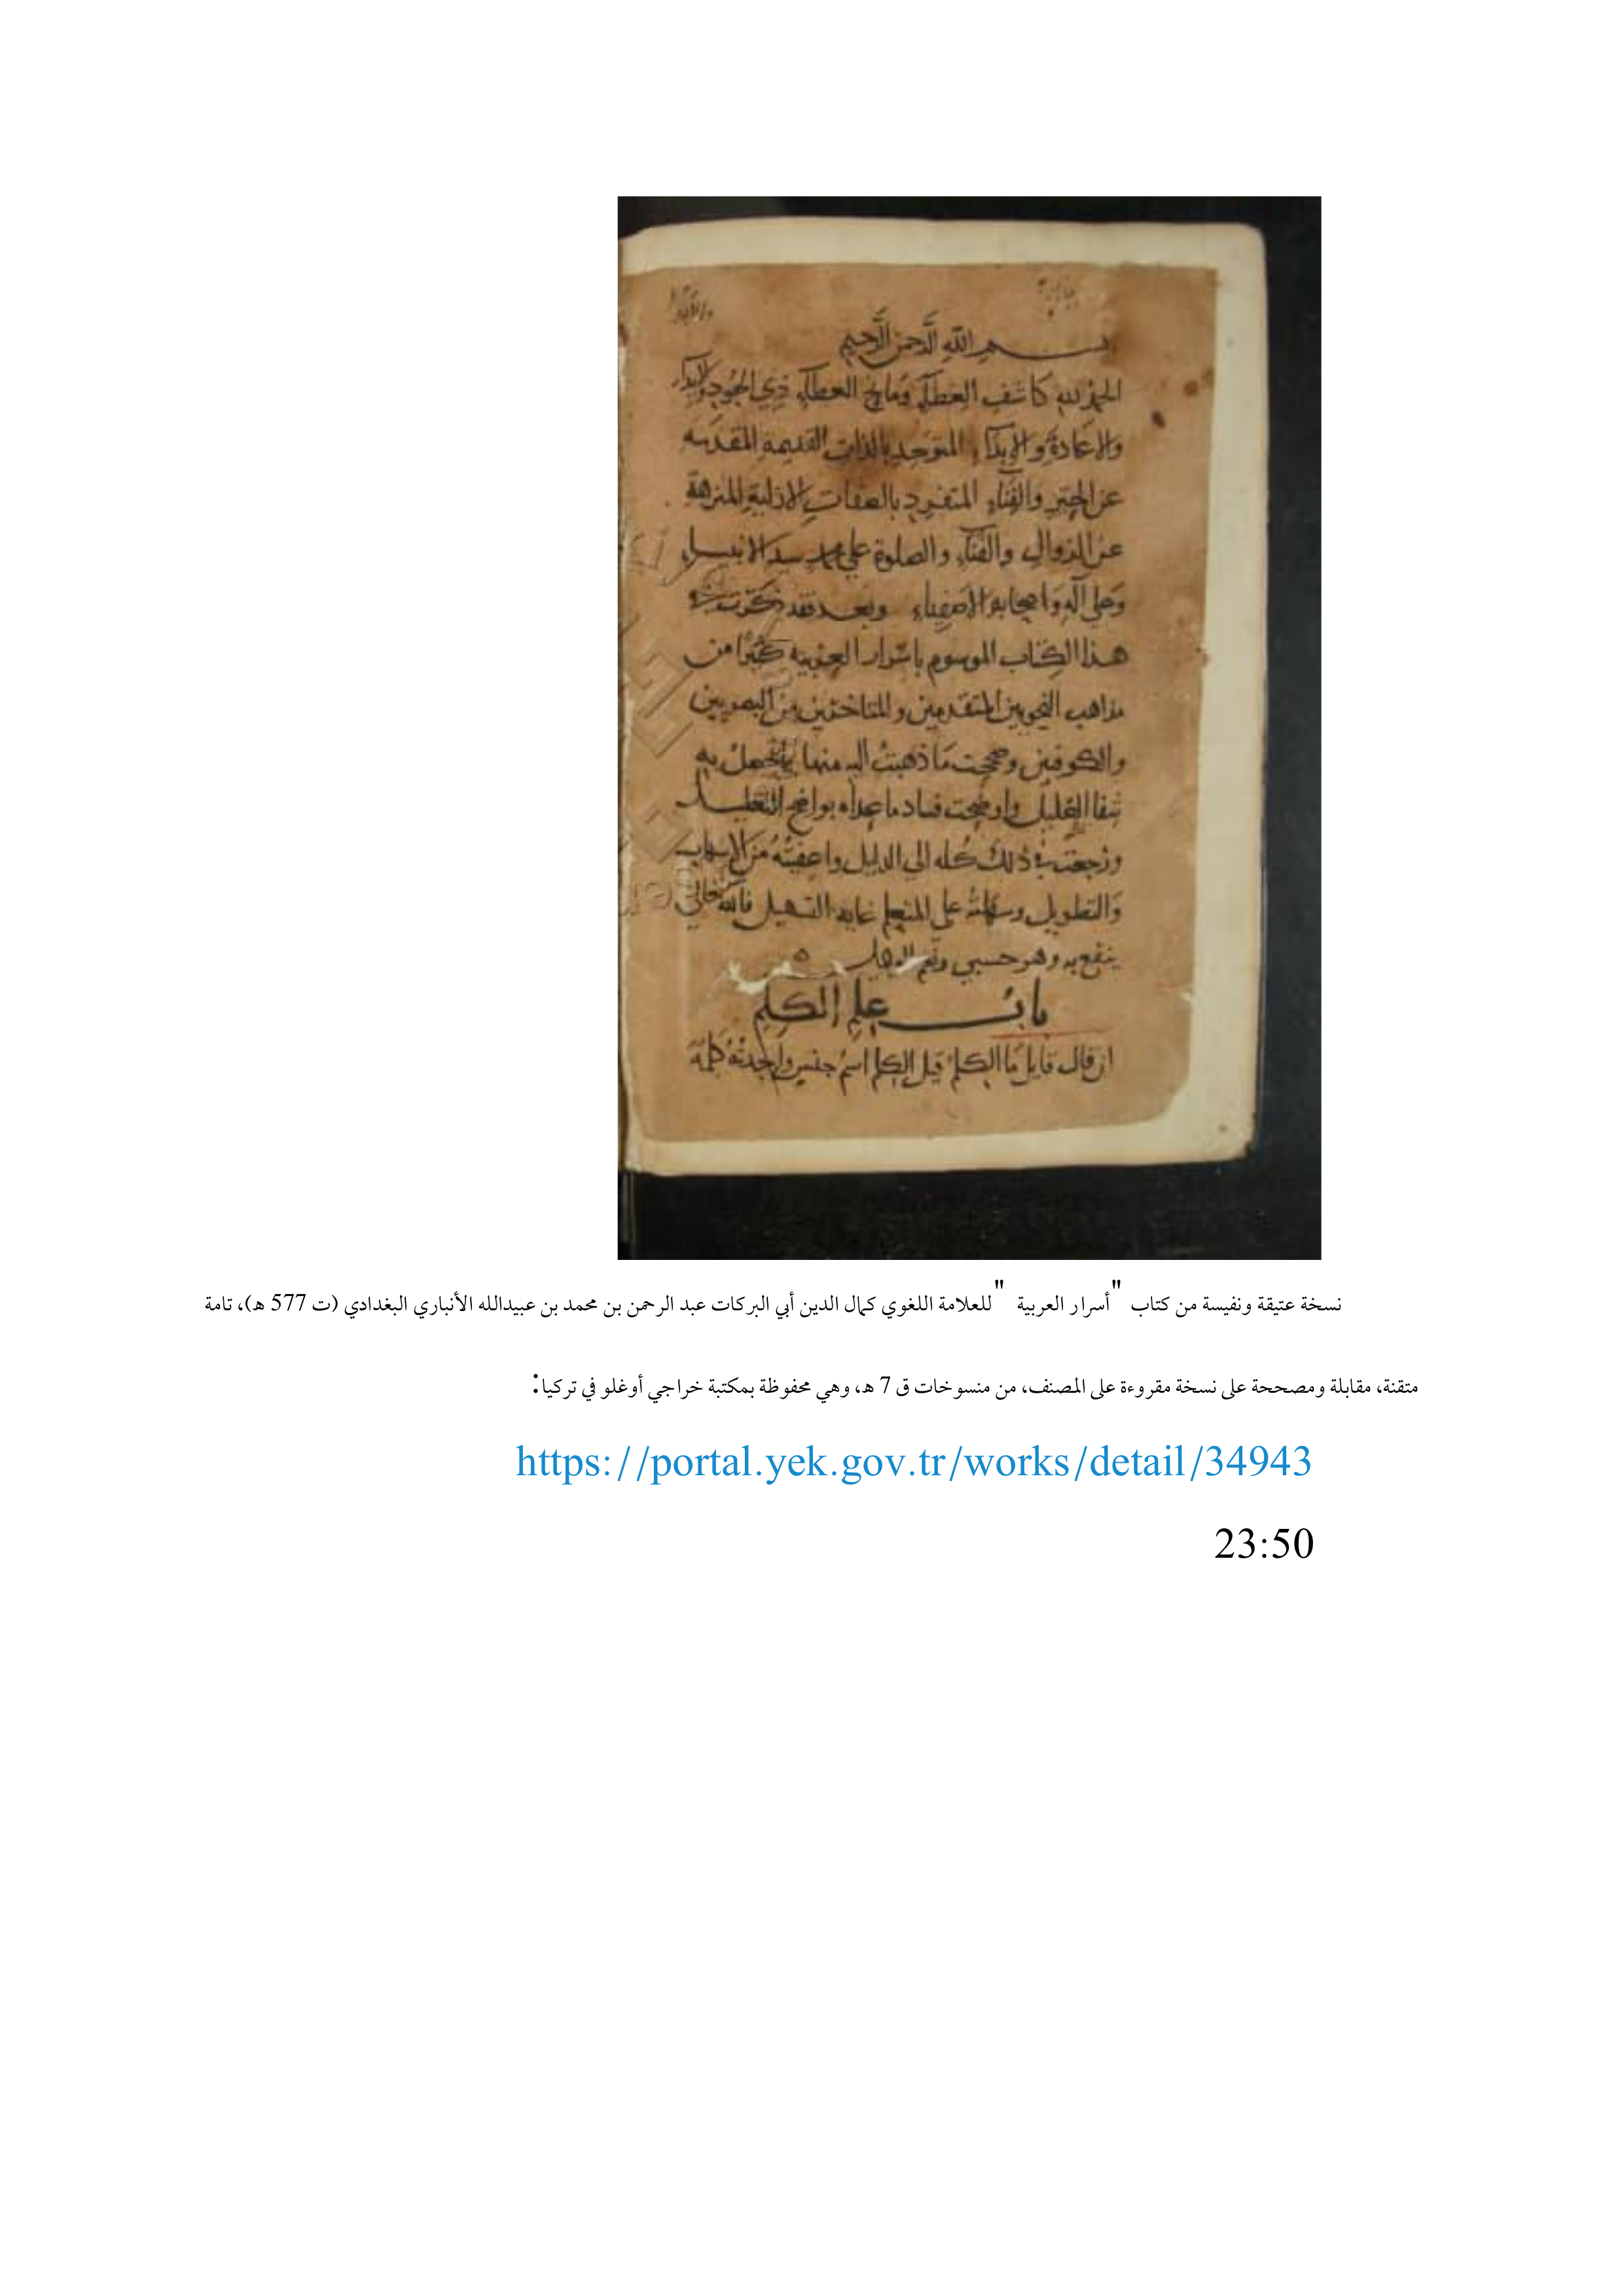 بسم الله الرحمن الرحيم
الحمد لله كاشف الغطاء ومانح العطاء ذي الجود والابداء
والاعادة والابداء المتوحد بالذات القديمة المقدسه
عن الحيز والفناء المتفرد بالصفات الازلية المنزهة
عن الزوال والفناء والصلوة على محمد سيد الانبياء
وعلى آله واصحابه الاصفياء وبعد فقد ذكرت في
هذا الكتاب الموسوم باسرار العربيه كثيرا من
مذاهب النحويين المتقدمين والمتاخرين من البصريين
والكوفيين وصححت ما ذهبت اليه منها بما يحصل به
شفا الغليل واوضحت فساد ما عداه بواضح التعليل
ورجعت في ذلك كله الى الدليل واعفيته من الاسهاب
والتطويل وسهلته على المتعلم غايه التسهيل فالله تعالى
ينفع به وهو حسبي ونعم الوكيل
باب علم الكلم
ان قال قايل ما الكلم قيل الكلم اسم جنس واحدته كلمة
نسخة عتيقة ونفيسة من كتاب "أسرار العربية" للعلامة اللغوي كمال الدين أبي البركات عبد الرحمن بن محمد بن عبيدالله الأنباري البغدادي (ت 577 هـ)، تامة
متقنة، مقابلة ومصححة على نسخة مقروءة على المصنف، من منسوخات ق 7 هـ، وهي محفوظة بمكتبة خراجي أوغلو في تركيا:
https://portal.yek.gov.tr/works/detail/34943
23:50